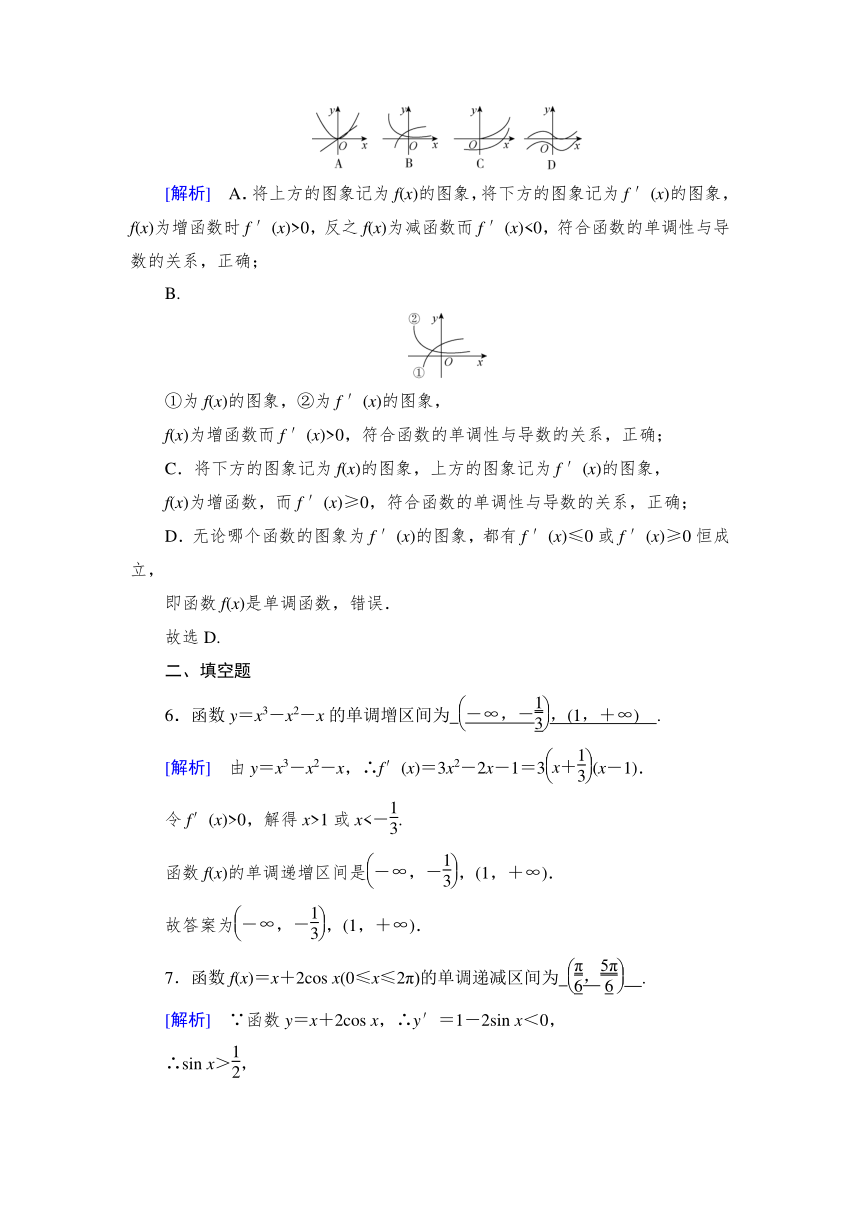 y y y y
O x O x O x O x
A B C D
[解析] A.将上方的图象记为 f(x)的图象,将下方的图象记为 f ′(x)的图象,
f(x)为增函数时 f ′(x)>0,反之 f(x)为减函数而 f ′(x)<0,符合函数的单调性与导
数的关系,正确;
B.
② y
O x
①
①为 f(x)的图象,②为 f ′(x)的图象,
f(x)为增函数而 f ′(x)>0,符合函数的单调性与导数的关系,正确;
C.将下方的图象记为 f(x)的图象,上方的图象记为 f ′(x)的图象,
f(x)为增函数,而 f ′(x)≥0,符合函数的单调性与导数的关系,正确;
D.无论哪个函数的图象为 f ′(x)的图象,都有 f ′(x)≤0 或 f ′(x)≥0 恒成
立,
即函数 f(x)是单调函数,错误.
故选 D.
二、填空题
6.函数 y=x³-x²-x 的单调增区间为 (-∞,-1/3),(1,+∞) .
[解析] 由 y=x³-x²-x,∴f′(x)=3x²-2x-1=3(x+1/3)(x-1).
令 f′(x)>0,解得 x>1 或 x<-1/3.
函数 f(x)的单调递增区间是(-∞,-1/3),(1,+∞).
故答案为(-∞,-1/3),(1,+∞).
7.函数 f(x)=x+2cos x(0≤x≤2π)的单调递减区间为 (π/6,5π/6) .
[解析] ∵函数 y=x+2cos x,∴y′=1-2sin x<0,
∴sin x>1/2,